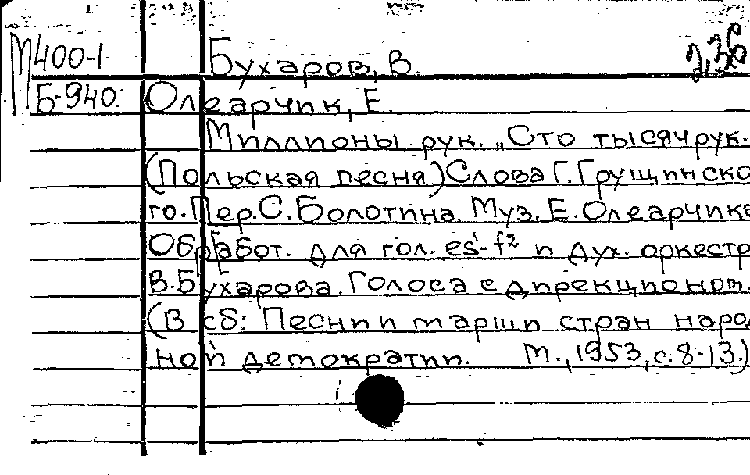 М400-1 Бухаров, В. 2,36
Б-940. Олеарчик, Е.
Миллионы рук. „Сто тысяч рук.
(Польская песня) Слова Г. Грущинско
го. Пер. С. Болотина. Муз. Е. Олеарчика
Обработ. для гол. es¹-f² и дух. оркестр
В. Бухарова. Голоса с дирекционом.
(В сб: Песни и марши стран наро
ной демократии. М., 1953, с. 8-13.)